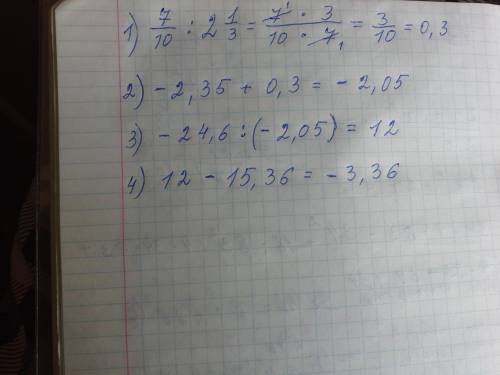 1) 7/10 : 2 1/3 = 7¹ · 3 / 10 · 7₁ = 3/10 = 0,3
2) - 2,35 + 0,3 = - 2,05
3) - 24,6 : (- 2,05) = 12
4) 12 - 15,36 = - 3,36